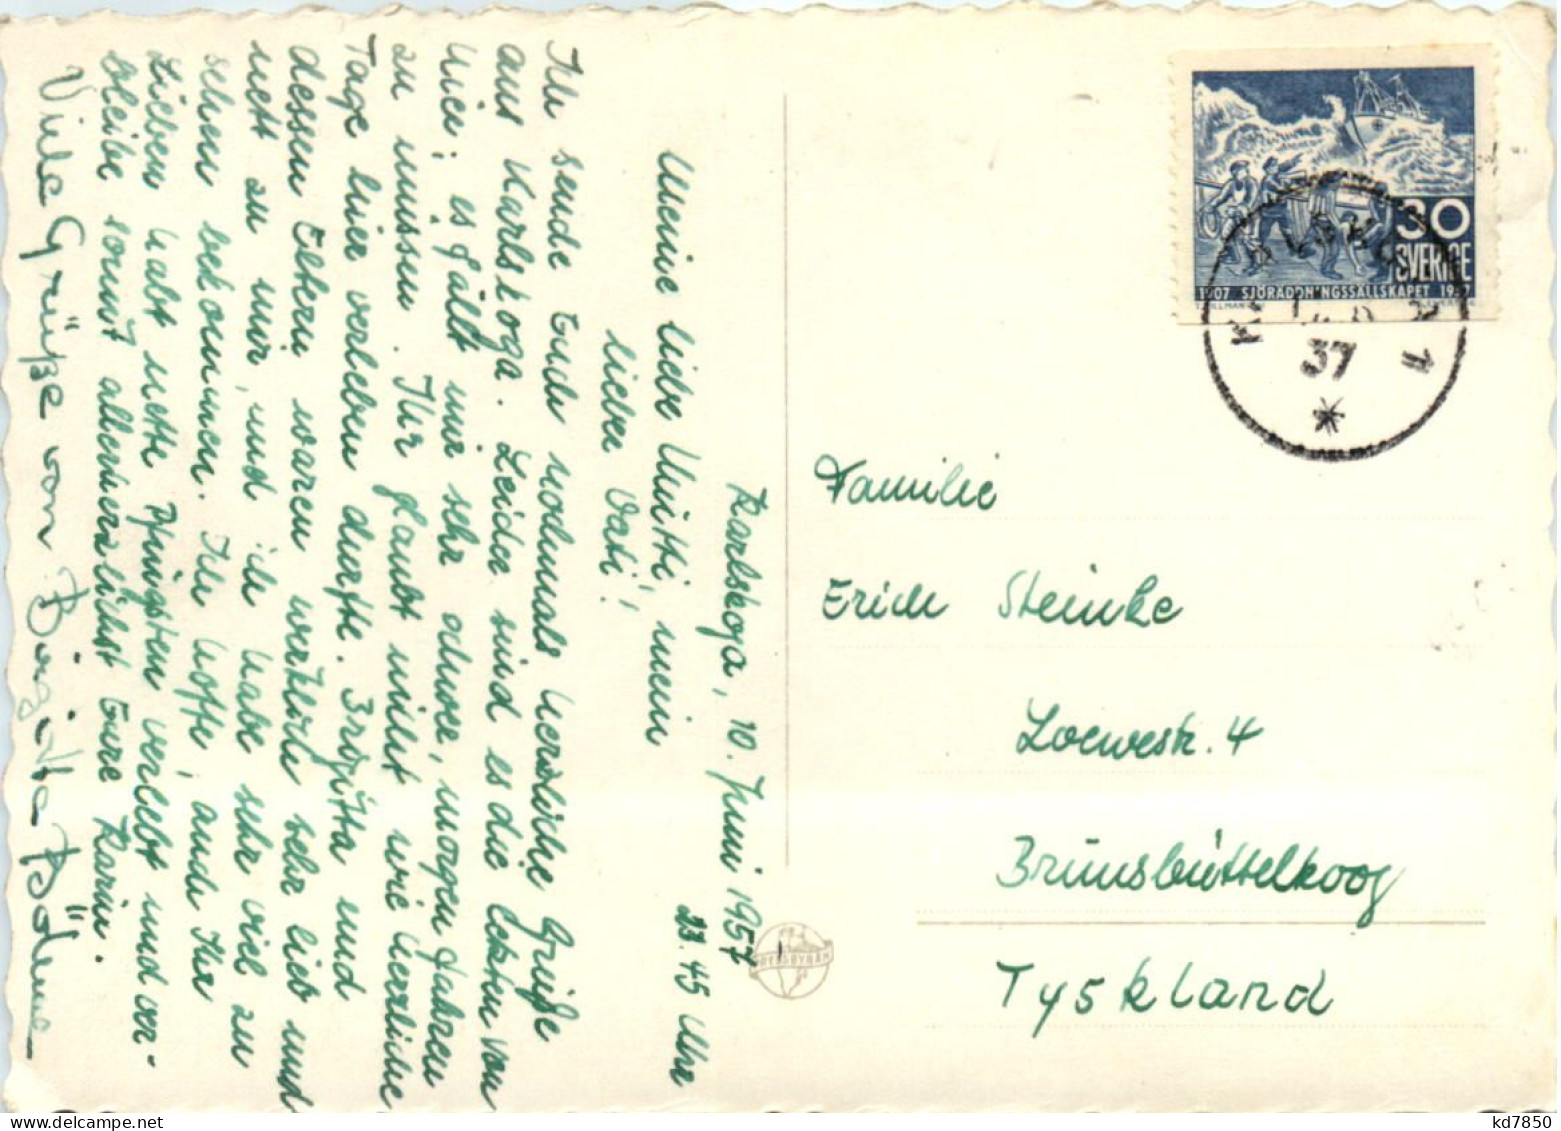 Karlskoga, 10. Juni 1957
23.45 Uhr
Meine liebe Mutti, mein
lieber Vati!
Ich sende Euch nochmals herzliche Grüße
aus Karlskoga. Leider sind es die letzten von
hier; es fällt mir sehr schwer, morgen fahren
zu müssen. Ihr glaubt nicht wie herrliche
Tage hier verleben durfte. Brigitta und
dessen Eltern waren wirklich sehr lieb und
nett zu mir, und ich habe sehr viel zu
sehen bekommen. Ich hoffe, auch Ihr
Lieben habt nette Pfingsten verlebt und ver-
bleibe somit allerherzlichst Eure Karin.
Viele Grüße von Birgitta Bödma
30
SVERIGE
1907 SJÖRÄDDNINGSSÄLLSKAPET 1957
KARLSKOGA 1
37
Familie
Erich Steinke
Loewestr. 4
Brunsbüttelkoog
Tyskland
kd7850